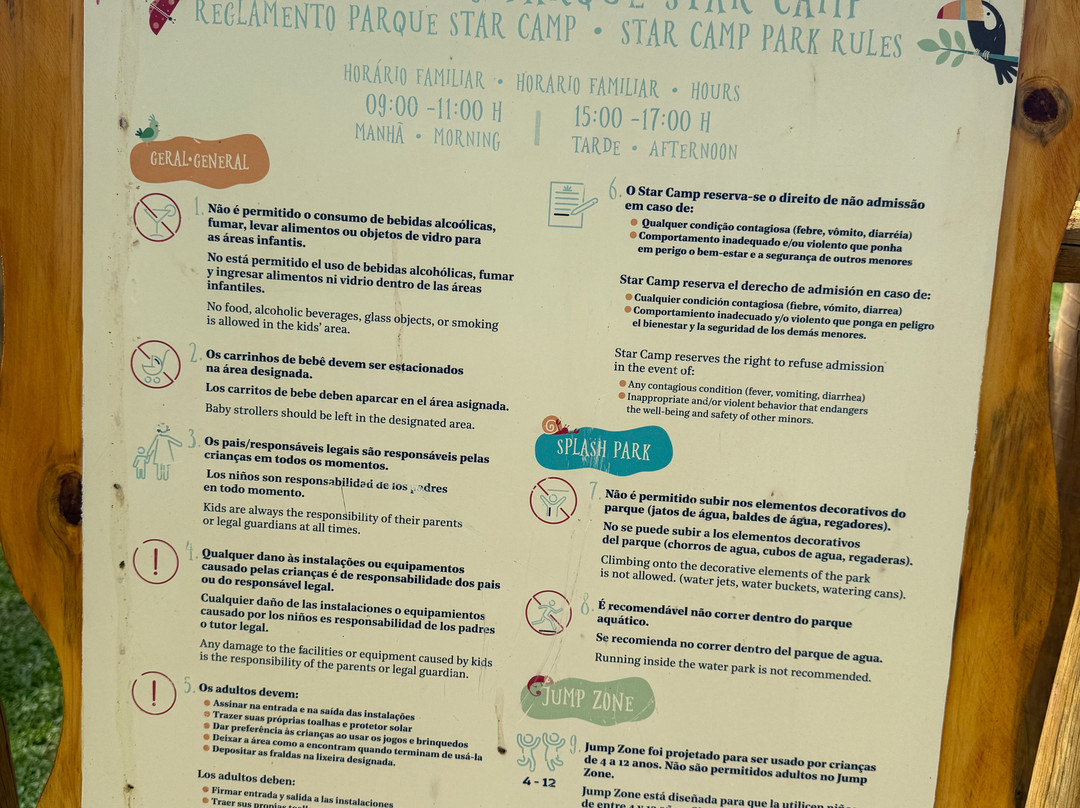 PARQUE STAR CAMP
REGLAMENTO PARQUE STAR CAMP • STAR CAMP PARK RULES
HORÁRIO FAMILIAR • HORARIO FAMILIAR • HOURS
09:00 -11:00 H
MANHÃ • MORNING
15:00 -17:00 H
TARDE • AFTERNOON
GERAL•GENERAL
1. Não é permitido o consumo de bebidas alcoólicas,
fumar, levar alimentos ou objetos de vidro para
as áreas infantis.
No está permitido el uso de bebidas alcohólicas, fumar
y ingresar alimentos ni vidrio dentro de las áreas
infantiles.
No food, alcoholic beverages, glass objects, or smoking
is allowed in the kids' area.
2. Os carrinhos de bebê devem ser estacionados
na área designada.
Los carritos de bebe deben aparcar en el área asignada.
Baby strollers should be left in the designated area.
3. Os pais/responsáveis legais são responsáveis pelas
crianças em todos os momentos.
Los niños son responsabilidad de los padres
en todo momento.
Kids are always the responsibility of their parents
or legal guardians at all times.
4. Qualquer dano às instalações ou equipamentos
causado pelas crianças é de responsabilidade dos pais
ou do responsável legal.
Cualquier daño de las instalaciones o equipamientos
causado por los niños es responsabilidad de los padres
o tutor legal.
Any damage to the facilities or equipment caused by kids
is the responsibility of the parents or legal guardian.
5. Os adultos devem:
Assinar na entrada e na saída das instalações
Trazer suas próprias toalhas e protetor solar
Dar preferência às crianças ao usar os jogos e brinquedos
Deixar a área como a encontram quando terminam de usá-la
Depositar as fraldas na lixeira designada.
Los adultos deben:
Firmar entrada y salida a las instalaciones
Traer sus propias
6. O Star Camp reserva-se o direito de não admissão
em caso de:
Qualquer condição contagiosa (febre, vômito, diarréia)
Comportamento inadequado e/ou violento que ponha
em perigo o bem-estar e a segurança de outros menores
Star Camp reserva el derecho de admisión en caso de:
Cualquier condición contagiosa (fiebre, vómito, diarrea)
Comportamiento inadecuado y/o violento que ponga en peligro
el bienestar y la seguridad de los demás menores.
Star Camp reserves the right to refuse admission
in the event of:
Any contagious condition (fever, vomiting, diarrhea)
Inappropriate and/or violent behavior that endangers
the well-being and safety of other minors.
SPLASH PARK
7. Não é permitido subir nos elementos decorativos do
parque (jatos de água, baldes de água, regadores).
No se puede subir a los elementos decorativos
del parque (chorros de agua, cubos de agua, regaderas).
Climbing onto the decorative elements of the park
is not allowed. (water jets, water buckets, watering cans).
8. É recomendável não correr dentro do parque
aquático.
Se recomienda no correr dentro del parque de agua.
Running inside the water park is not recommended.
JUMP ZONE
4 - 12
9. Jump Zone foi projetado para ser usado por crianças
de 4 a 12 anos. Não são permitidos adultos no Jump
Zone.
Jump Zone está diseñada para que la utilicen niños
de entre 4 y 12